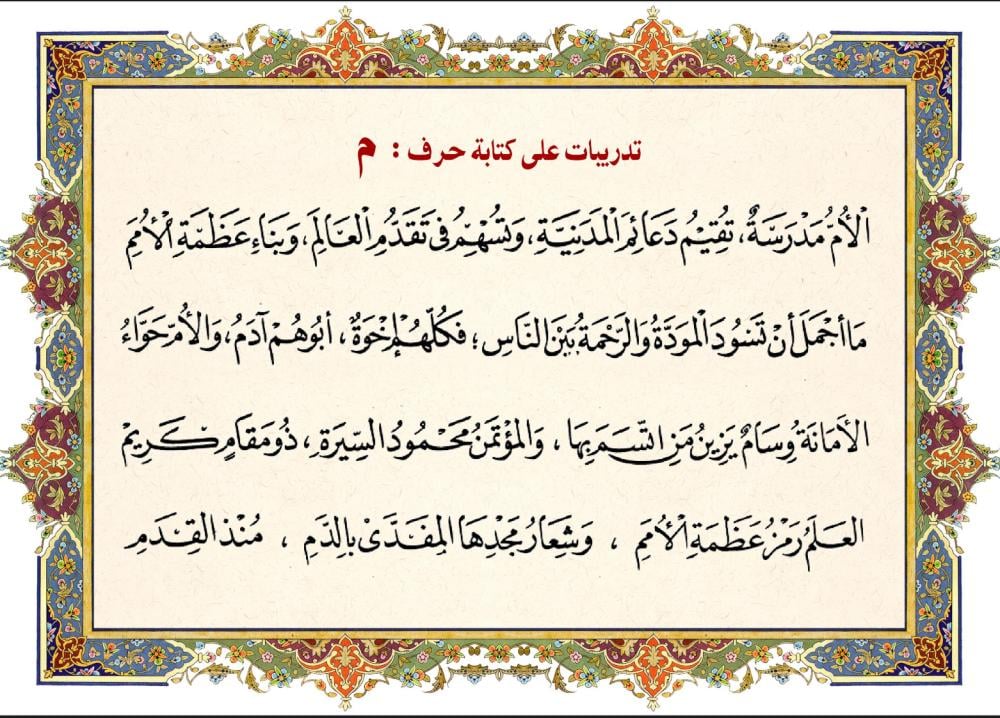 تدريبات على كتابة حرف : م
الْأُمُّ مَدْرَسَةٌ، تُقِيْمُ دَعَائِمَ الْمَدَنِيَّةِ، وَتُسْهِمُ فِي تَقَدُّمِ الْعَالَمِ، وَبِنَاءِ عَظَمَةِ الْأُمَمِ
مَا أَجْمَلَ أَنْ تَسُودَ الْمَوَدَّةُ وَالرَّحْمَةُ بَيْنَ النَّاسِ؛ فَكُلُّهُمْ إِخْوَةٌ، أَبُوهُمْ آدَمُ، وَالْأُمُّ حَوَّاءُ
الأَمَانَةُ وِسَامٌ يَزِينُ مَنِ اتَّسَمَ بِهَا، وَالمُؤْتَمَنُ مَحْمُودُ السِّيرَةِ، ذُو مَقَامٍ كَرِيمْ
العَلَمُ رَمْزُ عَظَمَةِ الْأُمَمِ ، وَشِعَارُ مَجْدِهَا المُفَدَّىْ بِالدَّمِ ، مُنْذُ القِدَمِ